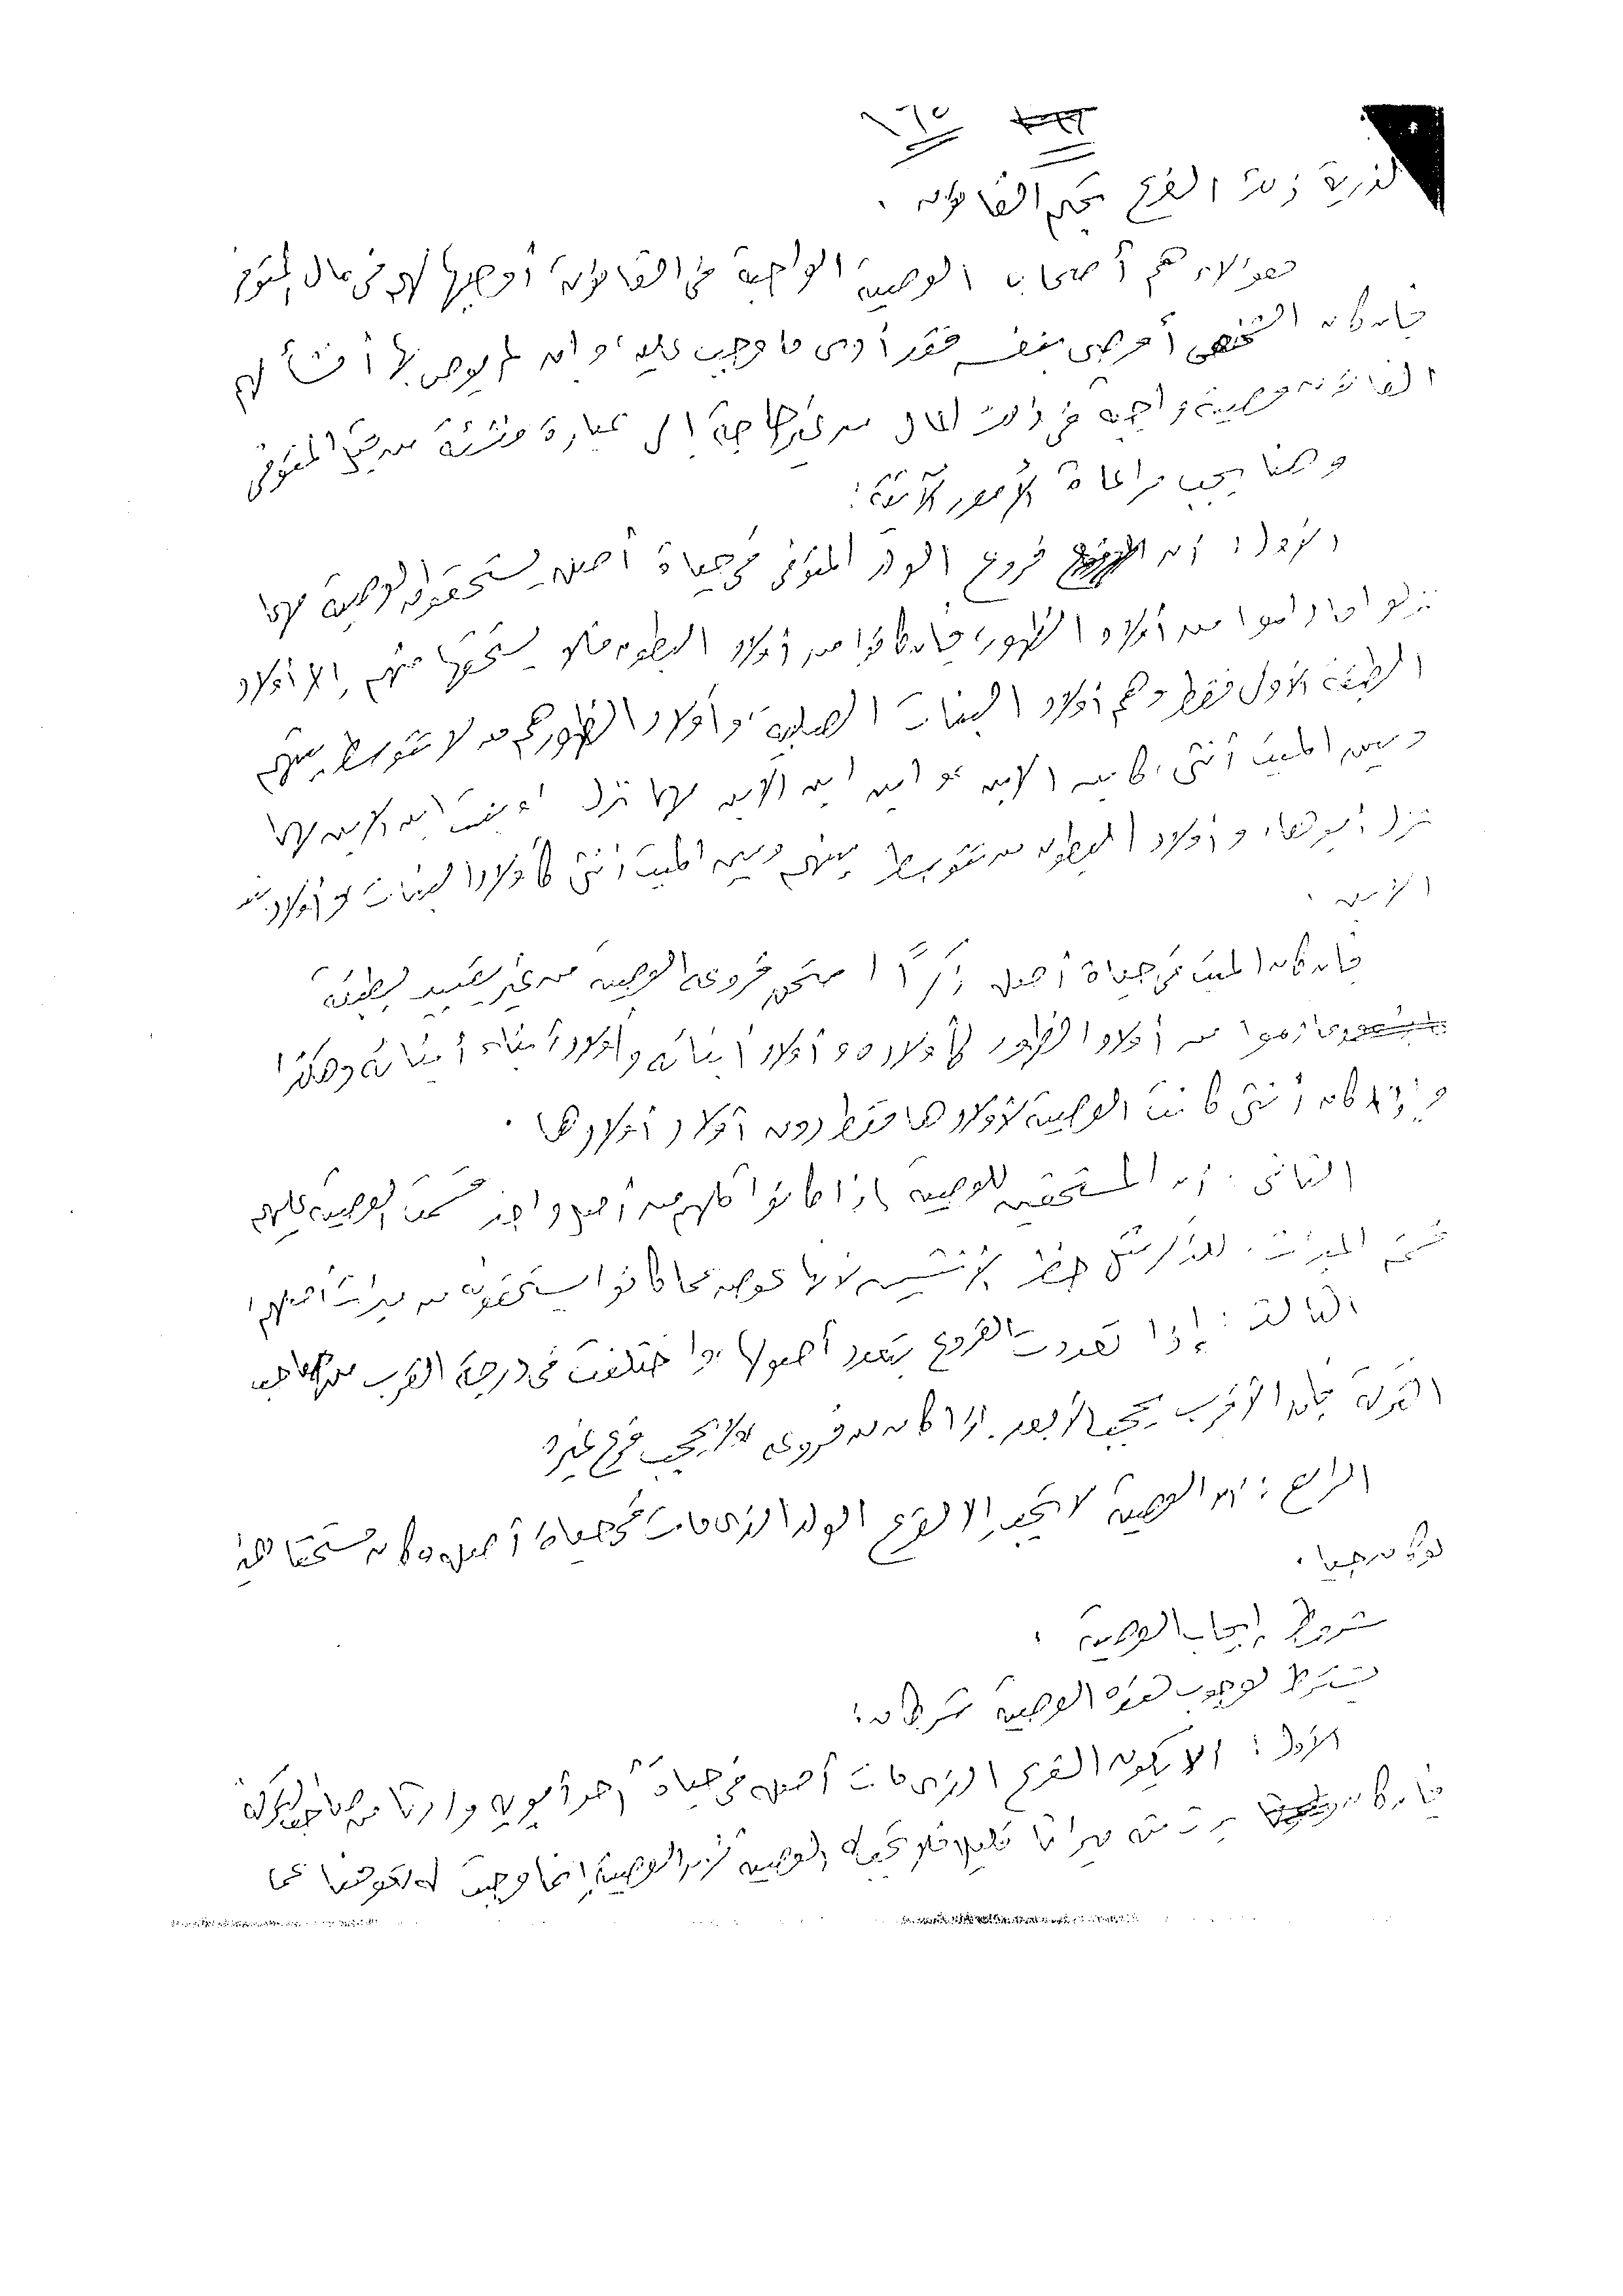 ١٦٥
لذرية ذلك الفرع بحكم القانون .
هؤلاء هم أصحاب الوصية الواجبة فى القانون أوجبها لهم فى مال المتوفى
فإن كان الشخص أوصى بنفسه فقد أدى ما وجب عليه، وإن لم يوص بها أنشأ لهم
القانون وصية واجبة فى ذلك المال من غير حاجة إلى عبارة منشئة من قبل المتوفى
وهنا يجب مراعاة الأمور الآتية :
الأول : أن فروع الولد المتوفى فى حياة أصله يستحقون الوصية مهما
نزلوا ما داموا من أولاد الظهور، فإن كانوا من أولاد البطون فلا يستحقها منهم إلا أولاد
الطبقة الأولى فقط وهم أولاد البنات الصلبية، وأولاد الظهور هم من لا تتوسط بينهم
وبين الميت أنثى، كابن الابن وابن ابن الابن مهما نزل أو بنت ابن الابن مهما
نزل أبوها، وأولاد البطون من تتوسط بينهم وبين الميت أنثى كأولاد البنات وأولاد بنت
الابن .
فإن كان الميت فى حياة أصله ذكرًا استحق فروعه الوصية من غير تقييد بطبقة
ماداموا من أولاد الظهور كأولاده وأولاد أبنائه وأولاد أبناء أبنائه وهكذا
وإذا كان أنثى كانت الوصية لأولادها فقط دون أولاد أولادها .
الثانى : أن المستحقين للوصية إذا كانوا كلهم من أصل واحد قسمت الوصية عليهم
قسمة الميراث . للذكر مثل حظ الأنثيين لأنها عوض عما كانوا يستحقونه من ميراث أصلهم
الثالث : إذا تعددت الفروع بتعدد أصولها، واختلفت فى درجة القرب من صاحب
التركة فإن الأقرب يحجب الأبعد إذا كان من فروعه ولا يحجب فرع غيره
الرابع : أن الوصية لا تجب إلا لفرع الولد الذى مات فى حياة أصله وكان مستحقا
لو كان حيا .
شروط إيجاب الوصية :
يشترط لوجوب هذه الوصية شرطان :
الأول : ألا يكون الفرع الذى مات أصله فى حياة أحد أبويه وارثا من صاحب التركة
فإن كان يرث منه ميراثا قليلا فلا تجب له الوصية لأن الوصية إنما وجبت له تعويضا عما